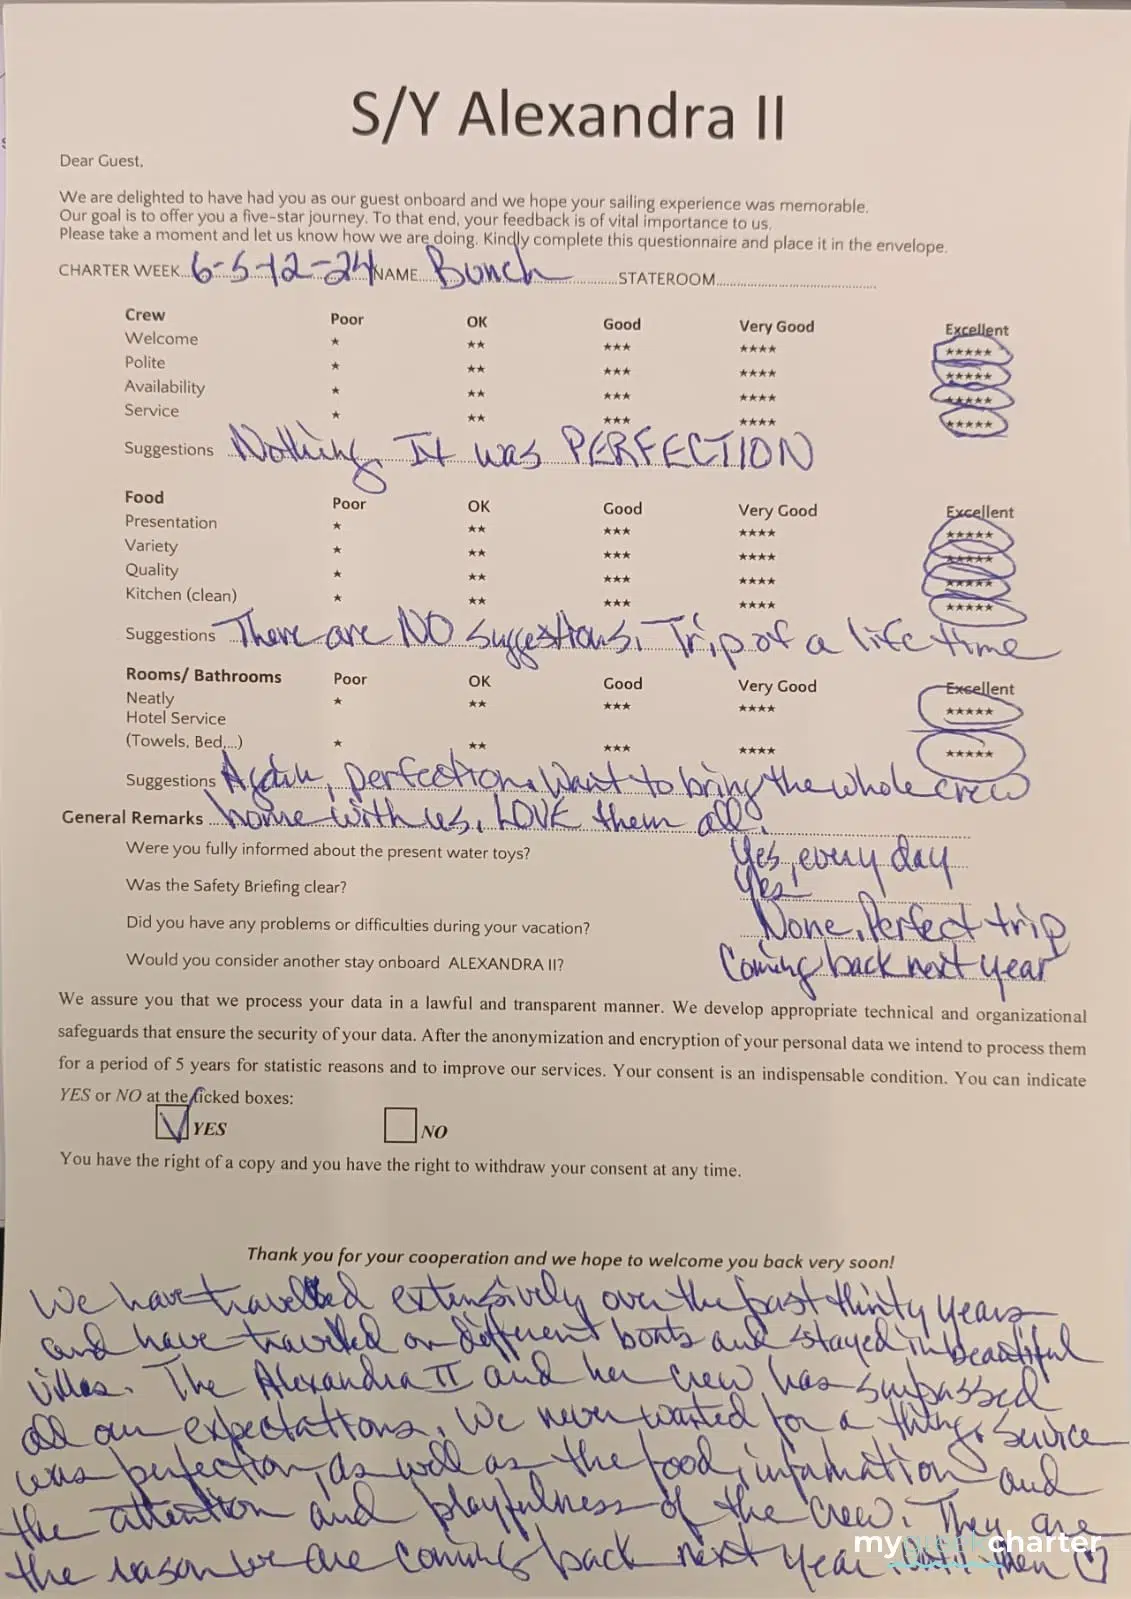 S/Y Alexandra II
Dear Guest,
We are delighted to have had you as our guest onboard and we hope your sailing experience was memorable.
Our goal is to offer you a five-star journey. To that end, your feedback is of vital importance to us.
Please take a moment and let us know how we are doing. Kindly complete this questionnaire and place it in the envelope.
CHARTER WEEK 6-5-12-24 NAME Bunch STATEROOM
Crew Poor OK Good Very Good Excellent
Welcome ★ ★★ ★★★ ★★★★ ★★★★★
Polite ★ ★★ ★★★ ★★★★ ★★★★★
Availability ★ ★★ ★★★ ★★★★ ★★★★★
Service ★ ★★ ★★★ ★★★★ ★★★★★
Suggestions Nothing. It was PERFECTION
Food Poor OK Good Very Good Excellent
Presentation ★ ★★ ★★★ ★★★★ ★★★★★
Variety ★ ★★ ★★★ ★★★★ ★★★★★
Quality ★ ★★ ★★★ ★★★★ ★★★★★
Kitchen (clean) ★ ★★ ★★★ ★★★★ ★★★★★
Suggestions There are NO suggestions. Trip of a life time
Rooms/ Bathrooms Poor OK Good Very Good Excellent
Neatly ★ ★★ ★★★ ★★★★ ★★★★★
Hotel Service
(Towels, Bed,...) ★ ★★ ★★★ ★★★★ ★★★★★
Suggestions Again, perfection. Want to bring the whole crew
General Remarks home with us. LOVE them all.
Were you fully informed about the present water toys? Yes, every day
Was the Safety Briefing clear? Yes!
Did you have any problems or difficulties during your vacation? None. Perfect trip
Would you consider another stay onboard ALEXANDRA II? Coming back next year
We assure you that we process your data in a lawful and transparent manner. We develop appropriate technical and organizational
safeguards that ensure the security of your data. After the anonymization and encryption of your personal data we intend to process them
for a period of 5 years for statistic reasons and to improve our services. Your consent is an indispensable condition. You can indicate
YES or NO at the ticked boxes:
YES NO
You have the right of a copy and you have the right to withdraw your consent at any time.
Thank you for your cooperation and we hope to welcome you back very soon!
We have travelled extensively over the past thirty years
and have travelled on different boats and stayed in beautiful
villas. The Alexandra II and her crew has surpassed
all our expectations. We never wanted for a thing. Service
was perfection, as well as the food, information and
the attention and playfulness of the crew. They are
the reason we are coming back next year. Until then
mygreekcharter